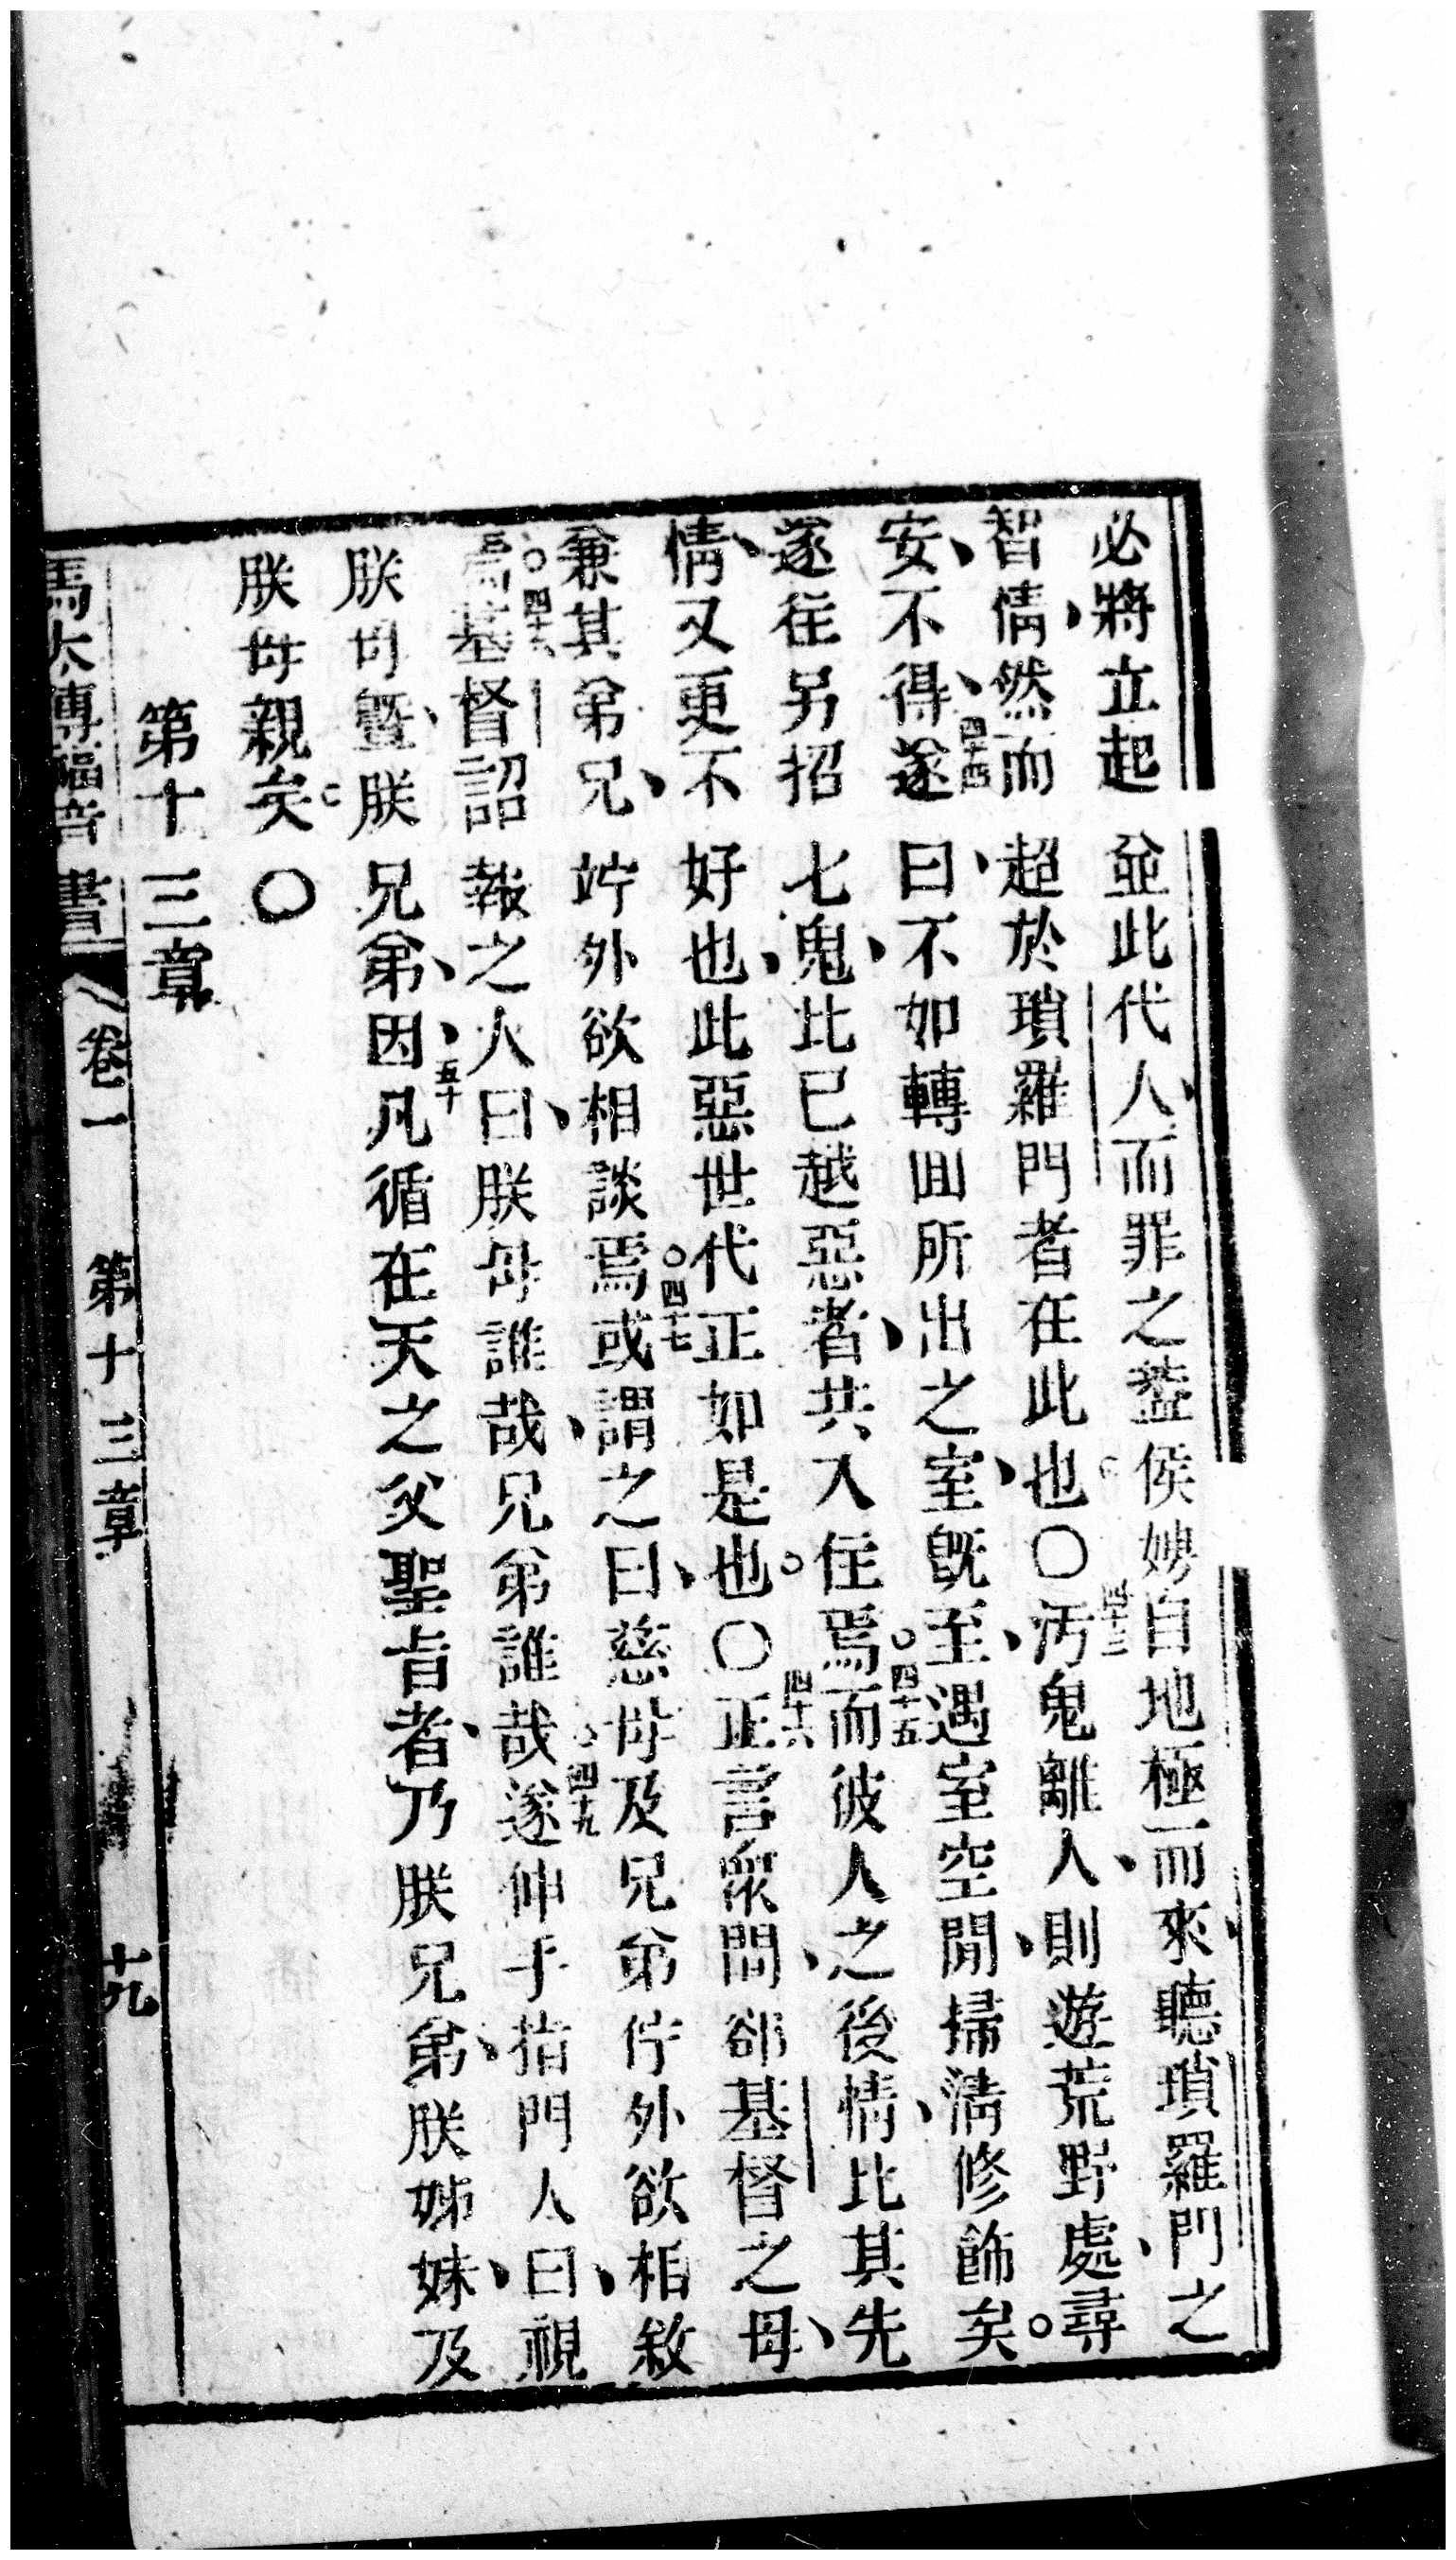 必將立起並此代人而罪之蓋侯娚自地極而來聽瑣羅門之
智情、然而超於瑣羅門者在此也○四十三汚鬼離人、則遊荒野處、尋
安、不得、四十四遂曰、不如轉囬所出之室、旣至、遇室空閒、掃淸修飾矣。
遂往另招七鬼、比已越惡者、共入住焉○四十五而彼人之後情、比其先
情、又更不好也、此惡世代正如是也。○四十六正言衆問、郤基督之母、
兼其弟兄、竚外欲相談焉○四十七或謂之曰、慈母及兄弟佇外欲相敘
焉○四十八基督詔報之人曰、朕母誰哉、兄弟誰哉○四十九遂伸手指門人曰、視
朕母、曁朕兄弟、五十因凡循在天之父聖旨者、乃朕兄弟、朕姊妹、及
朕母親矣○
第十三章
馬太傳福音書 卷一 第十三章 十九